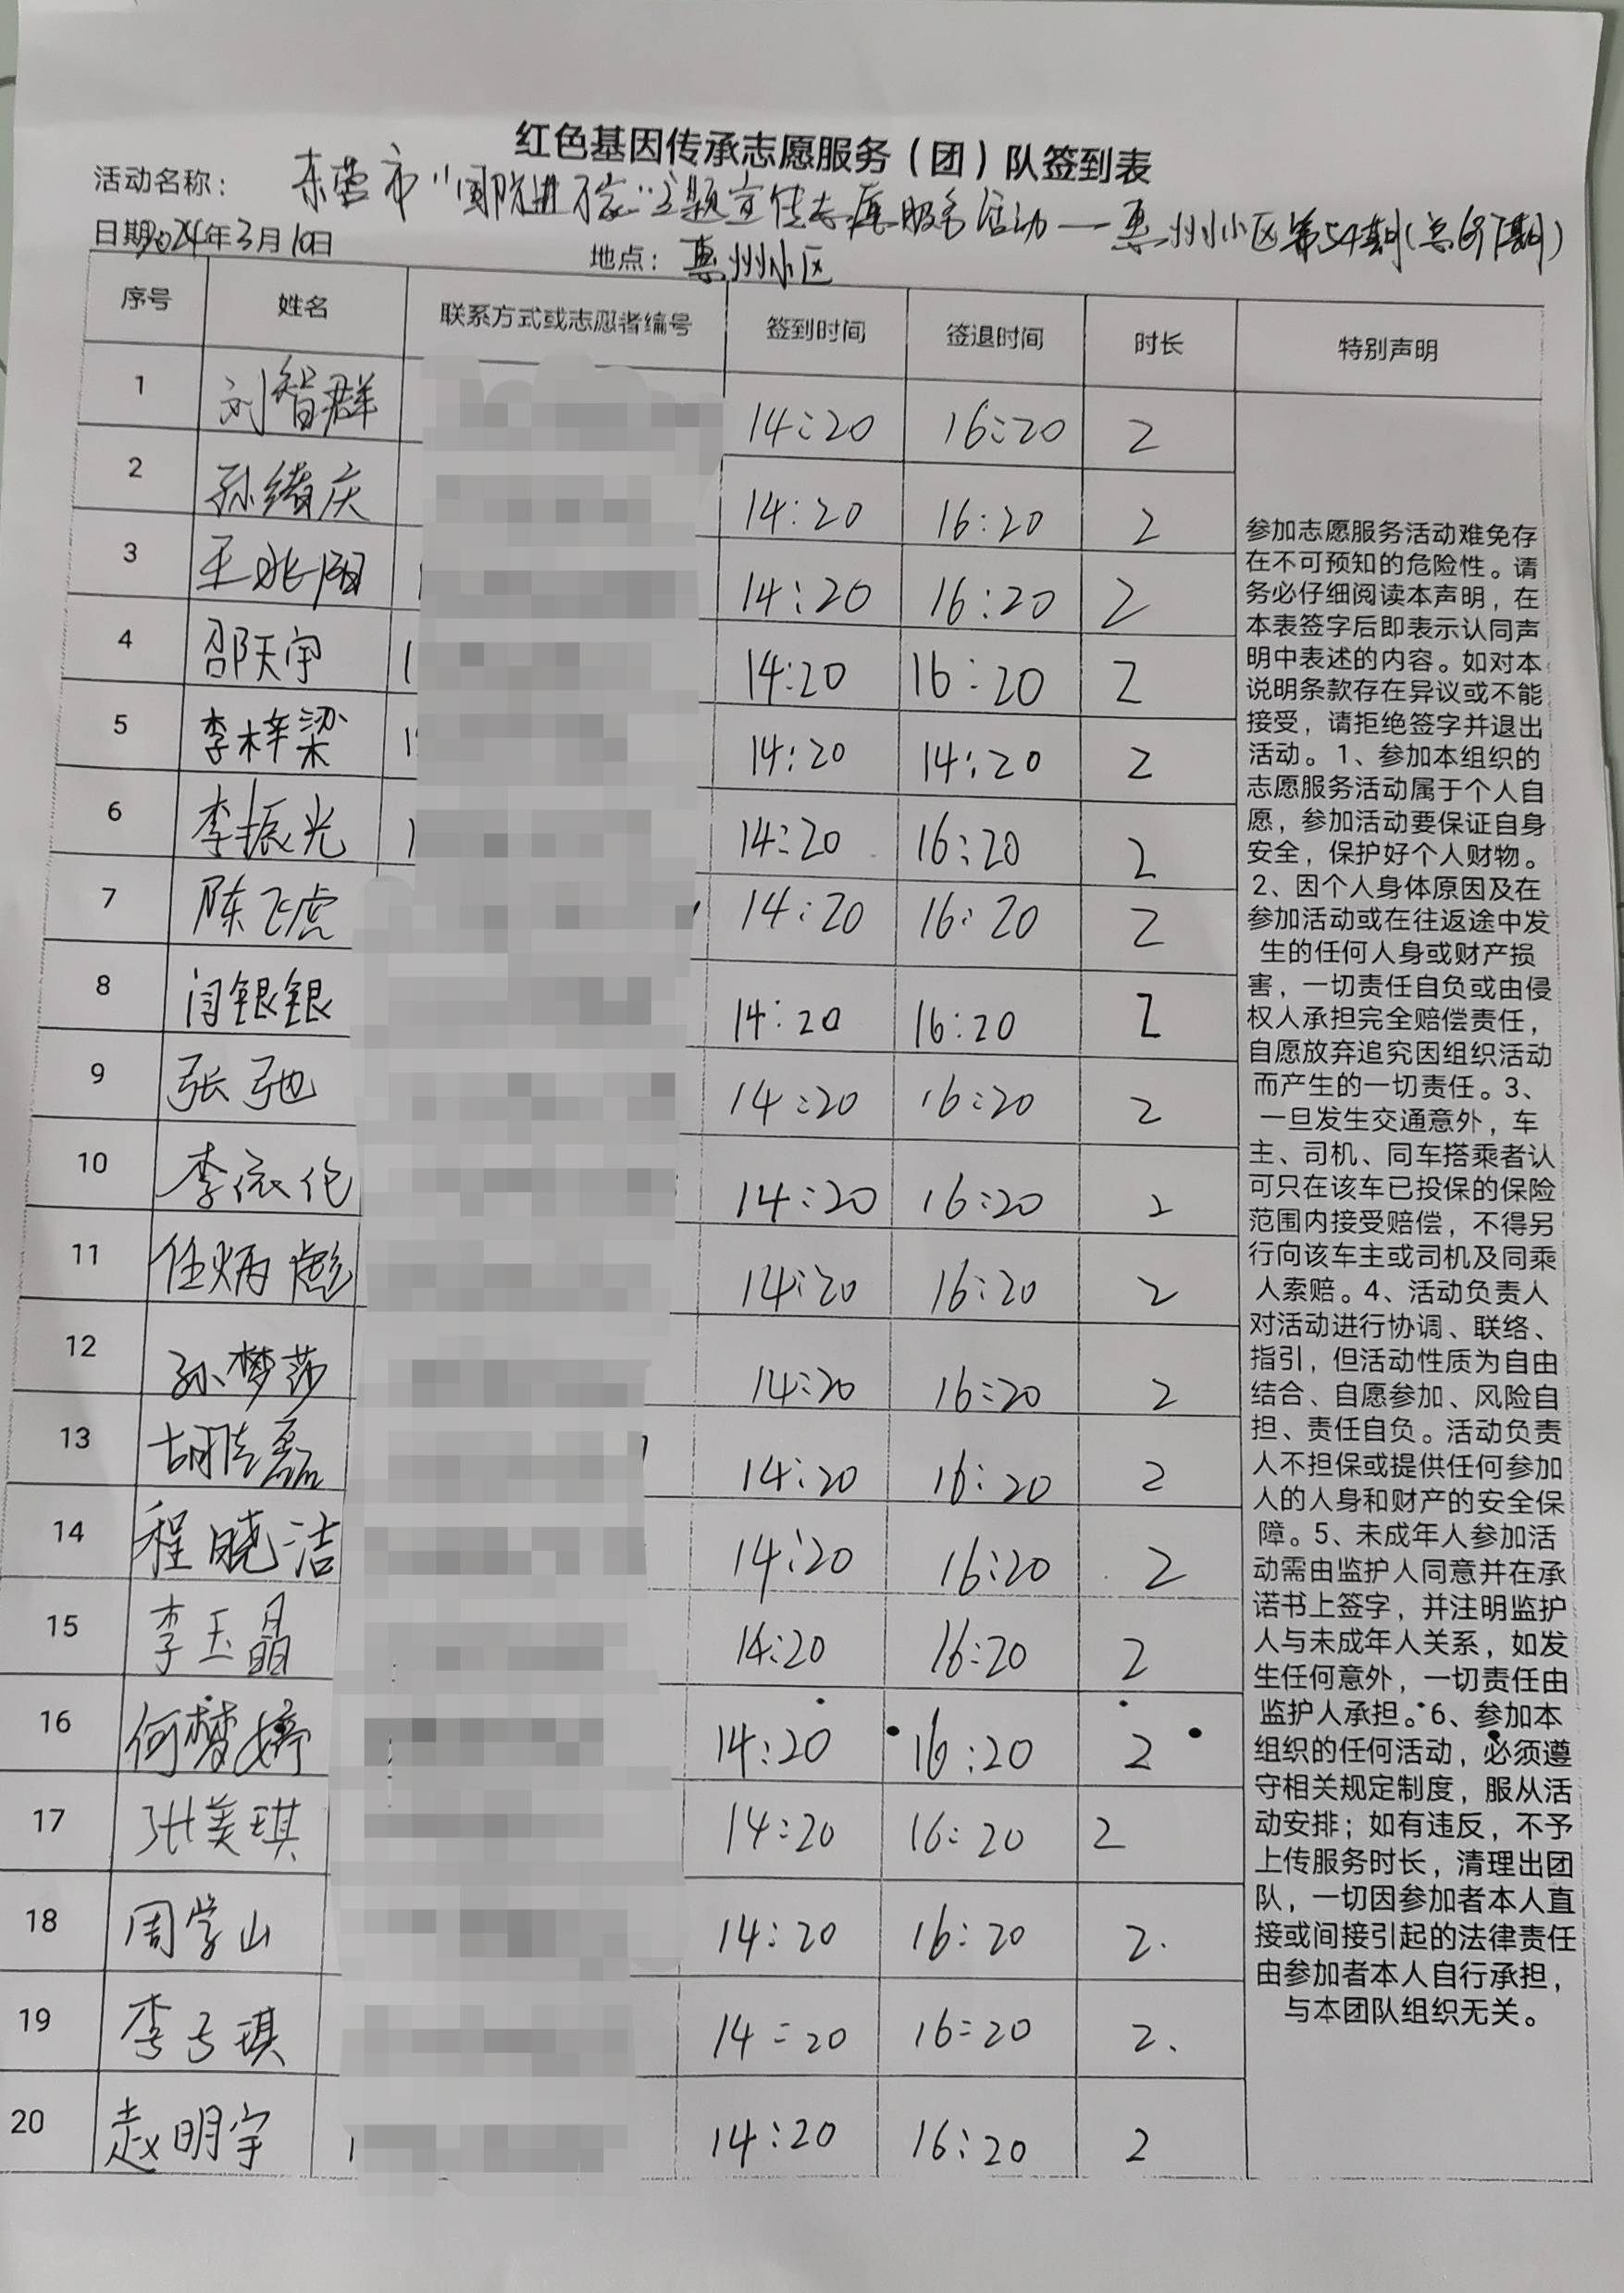 红色基因传承志愿服务（团）队签到表
活动名称： 东营市“国防进万家”主题宣传志愿服务活动—惠州小区第54期(总67期)
日期2024年3月10日 地点：惠州小区
序号 姓名 联系方式或志愿者编号 签到时间 签退时间 时长 特别声明
1 刘智群 14:20 16:20 2
2 孙绪庆 14:20 16:20 2
3 王兆阳 14:20 16:20 2
4 邵天宇 1 14:20 16:20 2
5 李梓梁 1 14:20 14:20 2
6 李振光 1 14:20 16:20 2
7 陈飞虎 14:20 16:20 2
8 闫银银 14:20 16:20 2
9 张弛 14:20 16:20 2
10 李依伦 14:20 16:20 2
11 任炳彪 14:20 16:20 2
12 孙梦莎 14:20 16:20 2
13 胡磊 14:20 16:20 2
14 程晓洁 14:20 16:20 2
15 李玉晶 14:20 16:20 2
16 何梦婷 14:20 16:20 2
17 张美琪 14:20 16:20 2
18 周学山 14:20 16:20 2.
19 李琪 14:20 16:20 2.
20 赵明宇 1 14:20 16:20 2
参加志愿服务活动难免存
在不可预知的危险性。请
务必仔细阅读本声明，在
本表签字后即表示认同声
明中表述的内容。如对本
说明条款存在异议或不能
接受，请拒绝签字并退出
活动。1、参加本组织的
志愿服务活动属于个人自
愿，参加活动要保证自身
安全，保护好个人财物。
2、因个人身体原因及在
参加活动或在往返途中发
生的任何人身或财产损
害，一切责任自负或由侵
权人承担完全赔偿责任，
自愿放弃追究因组织活动
而产生的一切责任。3、
一旦发生交通意外，车
主、司机、同车搭乘者认
可只在该车已投保的保险
范围内接受赔偿，不得另
行向该车主或司机及同乘
人索赔。4、活动负责人
对活动进行协调、联络、
指引，但活动性质为自由
结合、自愿参加、风险自
担、责任自负。活动负责
人不担保或提供任何参加
人的人身和财产的安全保
障。5、未成年人参加活
动需由监护人同意并在承
诺书上签字，并注明监护
人与未成年人关系，如发
生任何意外，一切责任由
监护人承担。6、参加本
组织的任何活动，必须遵
守相关规定制度，服从活
动安排；如有违反，不予
上传服务时长，清理出团
队，一切因参加者本人直
接或间接引起的法律责任
由参加者本人自行承担，
与本团队组织无关。